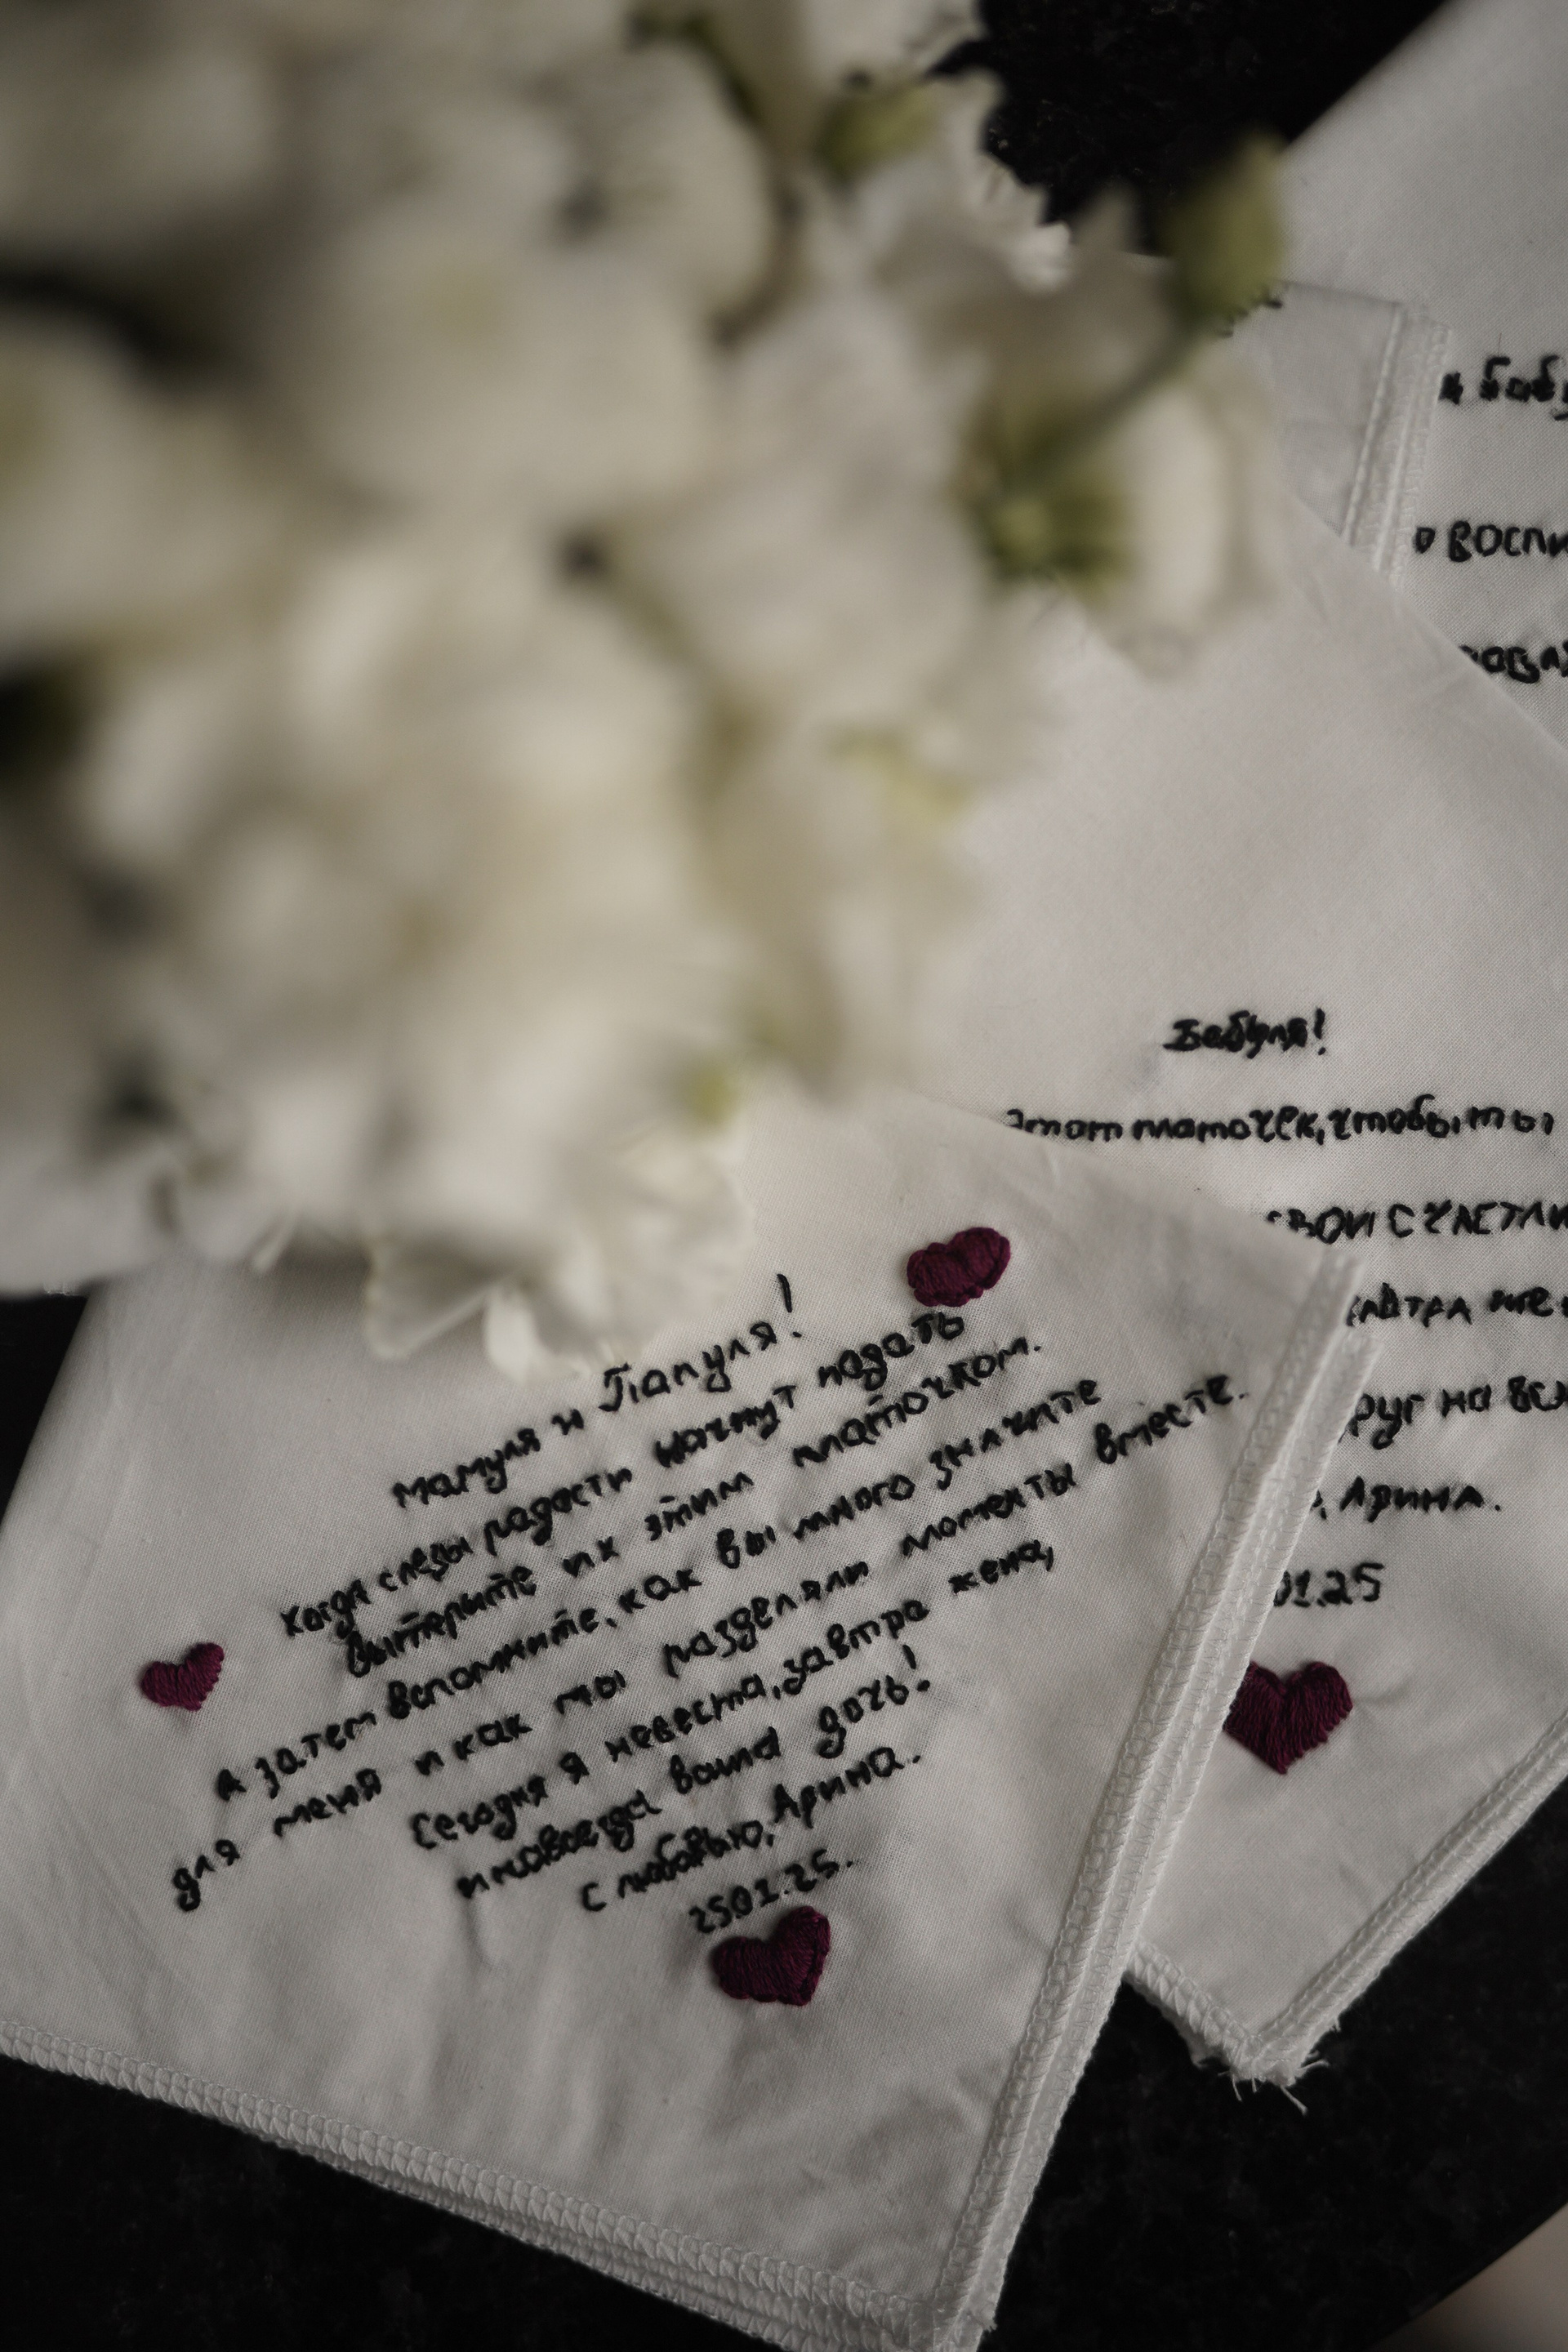 Мамуля и Папуля!
Когда слезы радости начнут падать
вытрите их этим платочком.
А затем вспомните, как вы много значите
для меня и как мы разделяли моменты вместе.
Сегодня я невеста, завтра жена,
и навсегда ваша дочь!
С любовью, Арина.
25.01.25.
Бабуля!
Этот платочек, чтобы ты
свои счастли
завтра же
друг на вс
, Арина.
01.25
и баб
о воспи